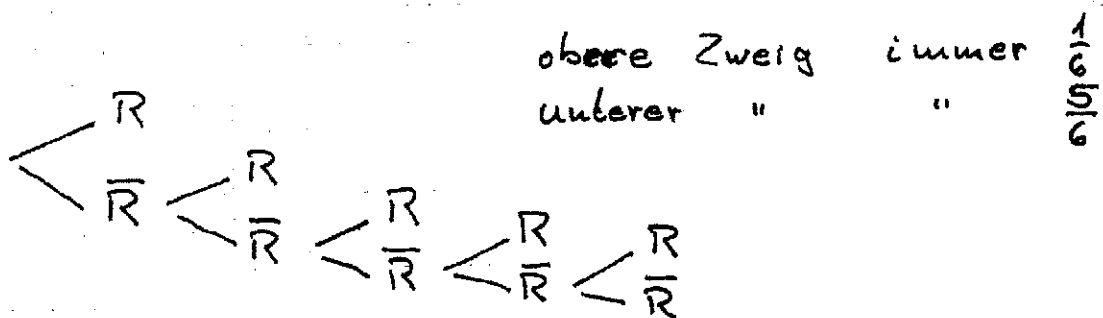 obere Zweig immer 1/6
unterer " " 5/6
R
R̅
R
R̅
R
R̅
R
R̅
R
R̅